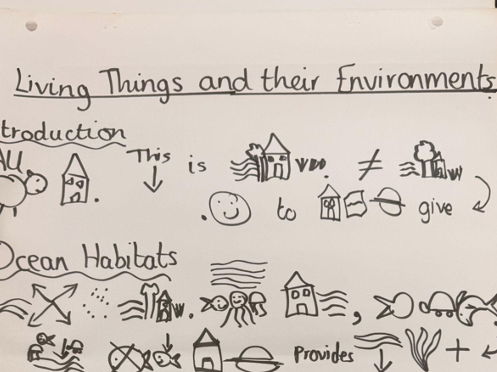 Living Things and their Environments
troduction
This is ≠
. to give
Ocean Habitats
. ,
Provides +